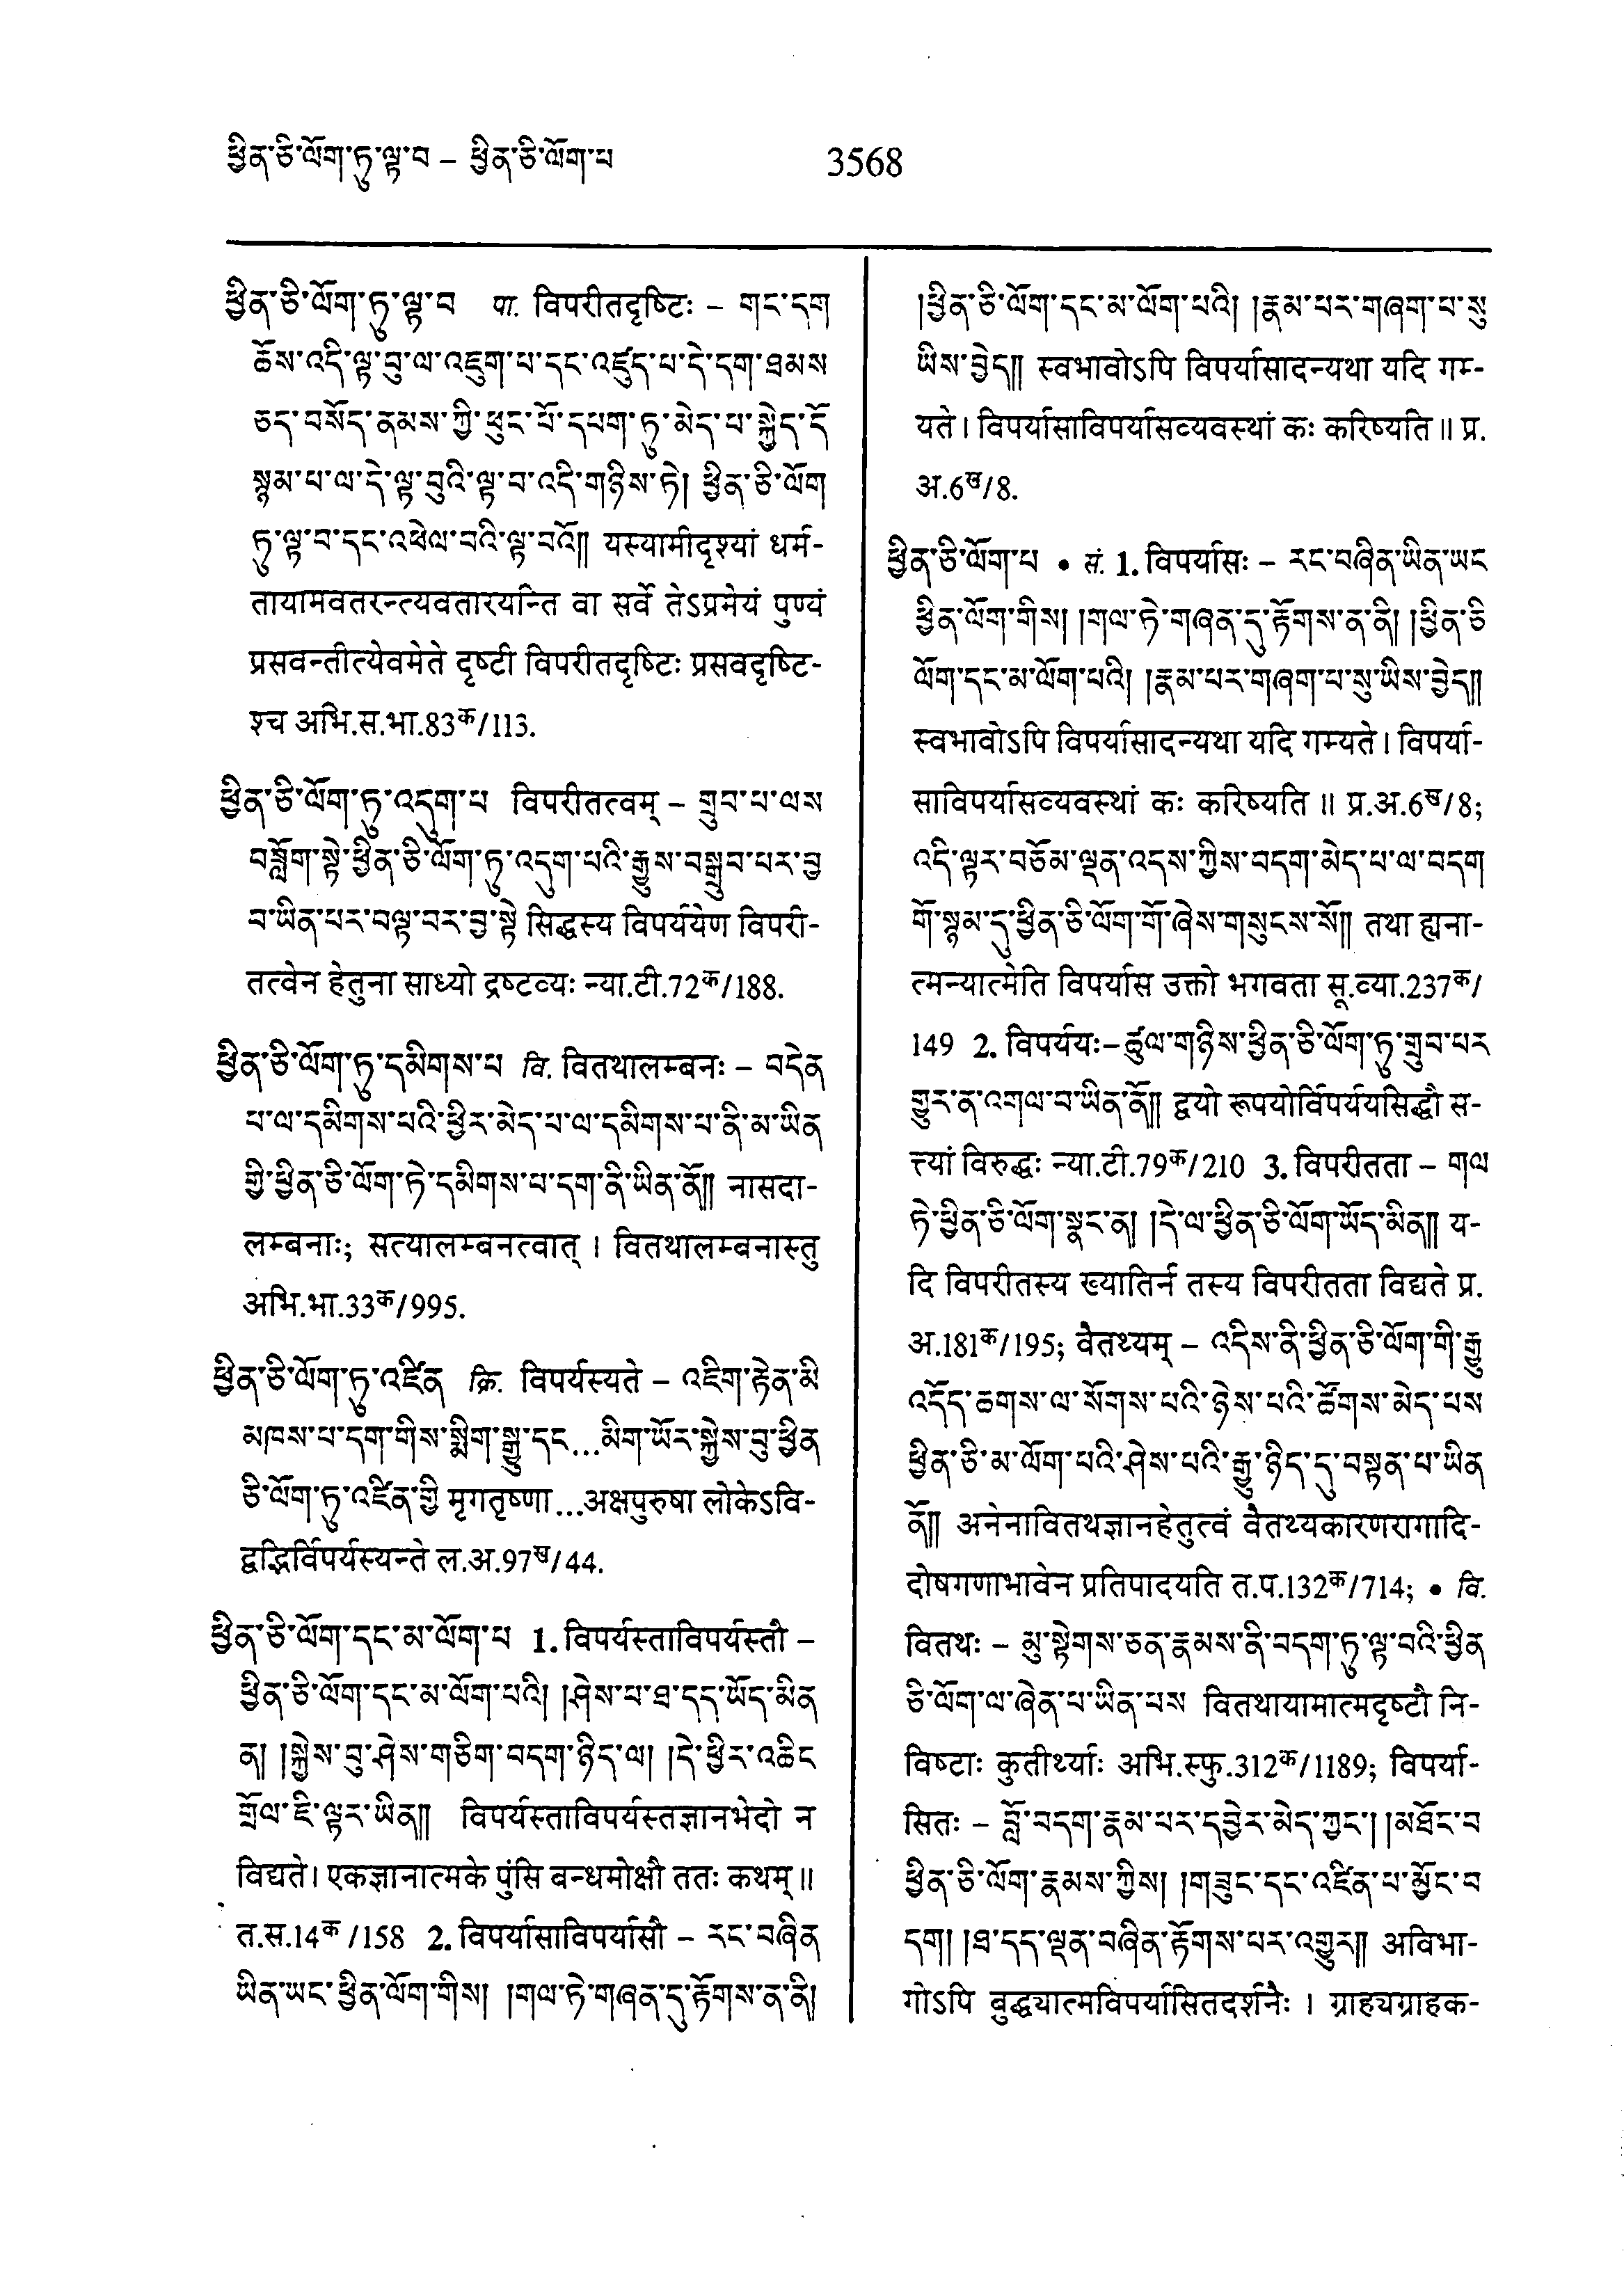 ཕྱིན་ཅི་ལོག་ཏུ་ལྟ་བ – ཕྱིན་ཅི་ལོག་པ
3568
ཕྱིན་ཅི་ལོག་ཏུ་ལྟ་བ पा. विपरीतदृष्टिः – གང་དག
ཆོས་འདི་ལྟ་བུ་ལ་འཇུག་པ་དང་འཛུད་པ་དེ་དག་ཐམས
ཅད་བསོད་ནམས་ཀྱི་ཕུང་པོ་དཔག་ཏུ་མེད་པ་སྐྱེད་དོ
སྙམ་པ་ལ་དེ་ལྟ་བུའི་ལྟ་བ་འདི་གཉིས་ཏེ། ཕྱིན་ཅི་ལོག
ཏུ་ལྟ་བ་དང་འཕེལ་བའི་ལྟ་བའོ།། यस्यामीदृश्यां धर्म-
तायामवतरन्त्यवतारयन्ति वा सर्वे तेऽप्रमेयं पुण्यं
प्रसवन्तीत्येवमेते दृष्टी विपरीतदृष्टिः प्रसवदृष्टि-
श्च अभि.स.भा.83क/113.
ཕྱིན་ཅི་ལོག་ཏུ་འདུག་པ विपरीतत्वम् – གྲུབ་པ་ལས
བཟློག་སྟེ་ཕྱིན་ཅི་ལོག་ཏུ་འདུག་པའི་རྒྱུས་བསྒྲུབ་པར་བྱ
བ་ཡིན་པར་བལྟ་བར་བྱ་སྟེ सिद्धस्य विपर्ययेण विपरी-
तत्वेन हेतुना साध्यो द्रष्टव्यः न्या.टी.72क/188.
ཕྱིན་ཅི་ལོག་ཏུ་དམིགས་པ वि. वितथालम्बनः – བདེན
པ་ལ་དམིགས་པའི་ཕྱིར་མེད་པ་ལ་དམིགས་པ་ནི་མ་ཡིན
གྱི་ཕྱིན་ཅི་ལོག་ཏེ་དམིགས་པ་དག་ནི་ཡིན་ནོ།། नासदा-
लम्बनाः; सत्यालम्बनत्वात् । वितथालम्बनास्तु
अभि.भा.33क/995.
ཕྱིན་ཅི་ལོག་ཏུ་འཛིན क्रि. विपर्यस्यते – འཇིག་རྟེན་མི
མཁས་པ་དག་གིས་སྨིག་སྒྱུ་དང...མིག་ཡོར་སྐྱེས་བུ་ཕྱིན
ཅི་ལོག་ཏུ་འཛིན་གྱི मृगतृष्णा...अक्षपुरुषा लोकेऽवि-
द्वद्भिर्विपर्यस्यन्ते ल.अ.97ख/44.
ཕྱིན་ཅི་ལོག་དང་མ་ལོག་པ 1. विपर्यस्ताविपर्यस्तौ –
ཕྱིན་ཅི་ལོག་དང་མ་ལོག་པའི། །ཤེས་པ་ཐ་དད་ཡོད་མིན
ན། །སྐྱེས་བུ་ཤེས་གཅིག་བདག་ཉིད་ལ། །དེ་ཕྱིར་འཆིང
གྲོལ་ཇི་ལྟར་ཡིན།། विपर्यस्ताविपर्यस्तज्ञानभेदो न
विद्यते। एकज्ञानात्मके पुंसि बन्धमोक्षौ ततः कथम् ॥
त.स.14क /158 2. विपर्यासाविपर्यासौ – རང་བཞིན
ཡིན་ཡང་ཕྱིན་ལོག་གིས། །གལ་ཏེ་གཞན་དུ་རྟོགས་ན་ནི།
།ཕྱིན་ཅི་ལོག་དང་མ་ལོག་པའི། །རྣམ་པར་གཞག་པ་སུ
ཡིས་བྱེད།། स्वभावोऽपि विपर्यासादन्यथा यदि गम-
यते। विपर्यासाविपर्यासव्यवस्थां कः करिष्यति ॥ प्र.
अ.6ख/8.
ཕྱིན་ཅི་ལོག་པ • सं. 1. विपर्यासः – རང་བཞིན་ཡིན་ཡང
ཕྱིན་ལོག་གིས། །གལ་ཏེ་གཞན་དུ་རྟོགས་ན་ནི། །ཕྱིན་ཅི
ལོག་དང་མ་ལོག་པའི། །རྣམ་པར་གཞག་པ་སུ་ཡིས་བྱེད།།
स्वभावोऽपि विपर्यासादन्यथा यदि गम्यते। विपर्या-
साविपर्यासव्यवस्थां कः करिष्यति ॥ प्र.अ.6ख/8;
འདི་ལྟར་བཅོམ་ལྡན་འདས་ཀྱིས་བདག་མེད་པ་ལ་བདག
གོ་སྙམ་དུ་ཕྱིན་ཅི་ལོག་གོ་ཞེས་གསུངས་སོ།། तथा ह्यना-
त्मन्यात्मेति विपर्यास उक्तो भगवता सू.व्या.237क/
149 2. विपर्ययः–ཚུལ་གཉིས་ཕྱིན་ཅི་ལོག་ཏུ་གྲུབ་པར
གྱུར་ན་འགལ་བ་ཡིན་ནོ།། द्वयो रूपयोर्विपर्ययसिद्धौ स-
त्त्यां विरुद्धः न्या.टी.79क/210 3. विपरीतता – གལ
ཏེ་ཕྱིན་ཅི་ལོག་སྣང་ན། །དེ་ལ་ཕྱིན་ཅི་ལོག་ཡོད་མིན།། य-
दि विपरीतस्य ख्यातिर्न तस्य विपरीतता विद्यते प्र.
अ.181क/195; वैतथ्यम् – འདིས་ནི་ཕྱིན་ཅི་ལོག་གི་རྒྱུ
འདོད་ཆགས་ལ་སོགས་པའི་ཉེས་པའི་ཚོགས་མེད་པས
ཕྱིན་ཅི་མ་ལོག་པའི་ཤེས་པའི་རྒྱུ་ཉིད་དུ་བསྟན་པ་ཡིན
ནོ།། अनेनावितथज्ञानहेतुत्वं वैतथ्यकारणरागादि-
दोषगणाभावेन प्रतिपादयति त.प.132क/714; • वि.
वितथः – མུ་སྟེགས་ཅན་རྣམས་ནི་བདག་ཏུ་ལྟ་བའི་ཕྱིན
ཅི་ལོག་ལ་ཞེན་པ་ཡིན་པས वितथायामात्मदृष्टौ नि-
विष्टाः कुतीर्थ्याः अभि.स्फु.312क/1189; विपर्या-
सितः – བློ་བདག་རྣམ་པར་དབྱེར་མེད་ཀྱང་། །མཐོང་བ
ཕྱིན་ཅི་ལོག་རྣམས་ཀྱིས། །གཟུང་དང་འཛིན་པ་མྱོང་བ
དག། །ཐ་དད་ལྡན་བཞིན་རྟོགས་པར་འགྱུར།། अविभा-
गोऽपि बुद्ध्यात्मविपर्यासितदर्शनैः । ग्राह्यग्राहक-